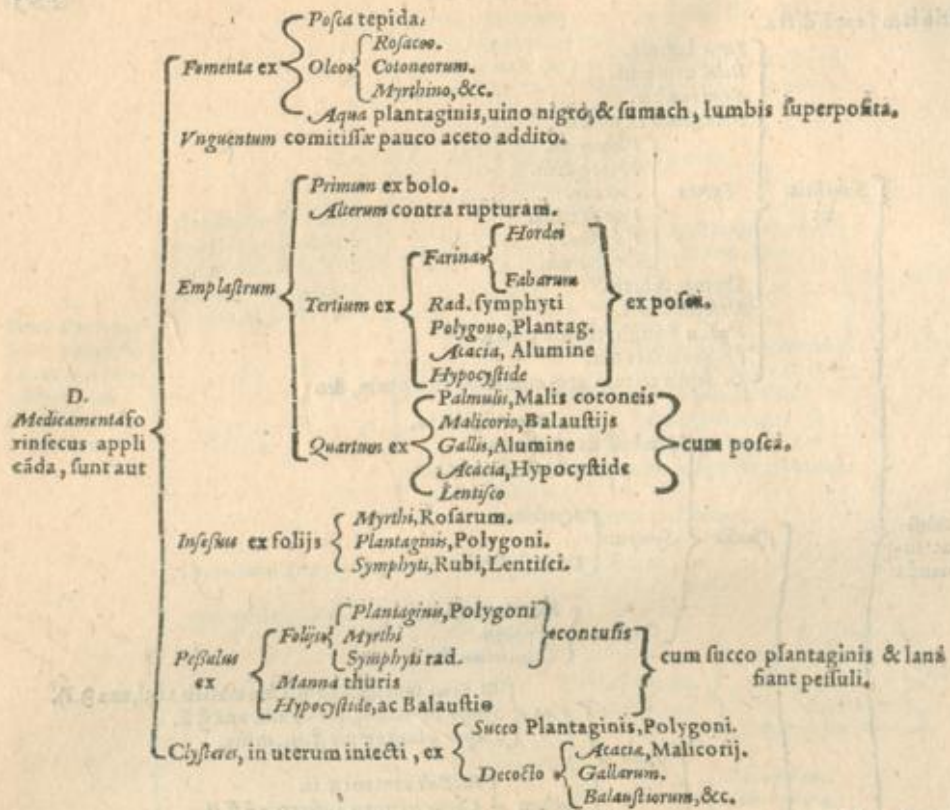 Posca tepida,
Fomenta ex
Oleo
Rosaceo.
Cotoneorum.
Myrthino, &c.
Aqua plantaginis, uino nigro, & sumach, lumbis superposita.
Vnguentum comitissæ pauco aceto addito.
Emplastrum
Primum ex bolo.
Alterum contra rupturam.
Tertium ex
Farina
Hordei
Fabarum
Rad. symphyti
Polygono, Plantag.
Acacia, Alumine
Hypocystide
ex posca.
Quartum ex
Palmulis, Malis cotoneis
Malicorio, Balaustijs
Gallis, Alumine
Acacia, Hypocystide
Lentisco
cum posca.
D.
Medicamenta fo
rinsecus appli
cãda, sunt aut
Insessus ex folijs
Myrthi, Rosarum.
Plantaginis, Polygoni.
Symphyti, Rubi, Lentisci.
Pessulus
ex
Folijs
Plantaginis, Polygoni
Myrthi
Symphyti rad.
contusis
Manna thuris
Hypocystide, ac Balaustio
cum succo plantaginis & lana
fiant pessuli.
Clysteres, in uterum iniecti, ex
Succo Plantaginis, Polygoni.
Decocto
Acaciæ, Malicorij.
Gallarum.
Balaustiorum, &c.